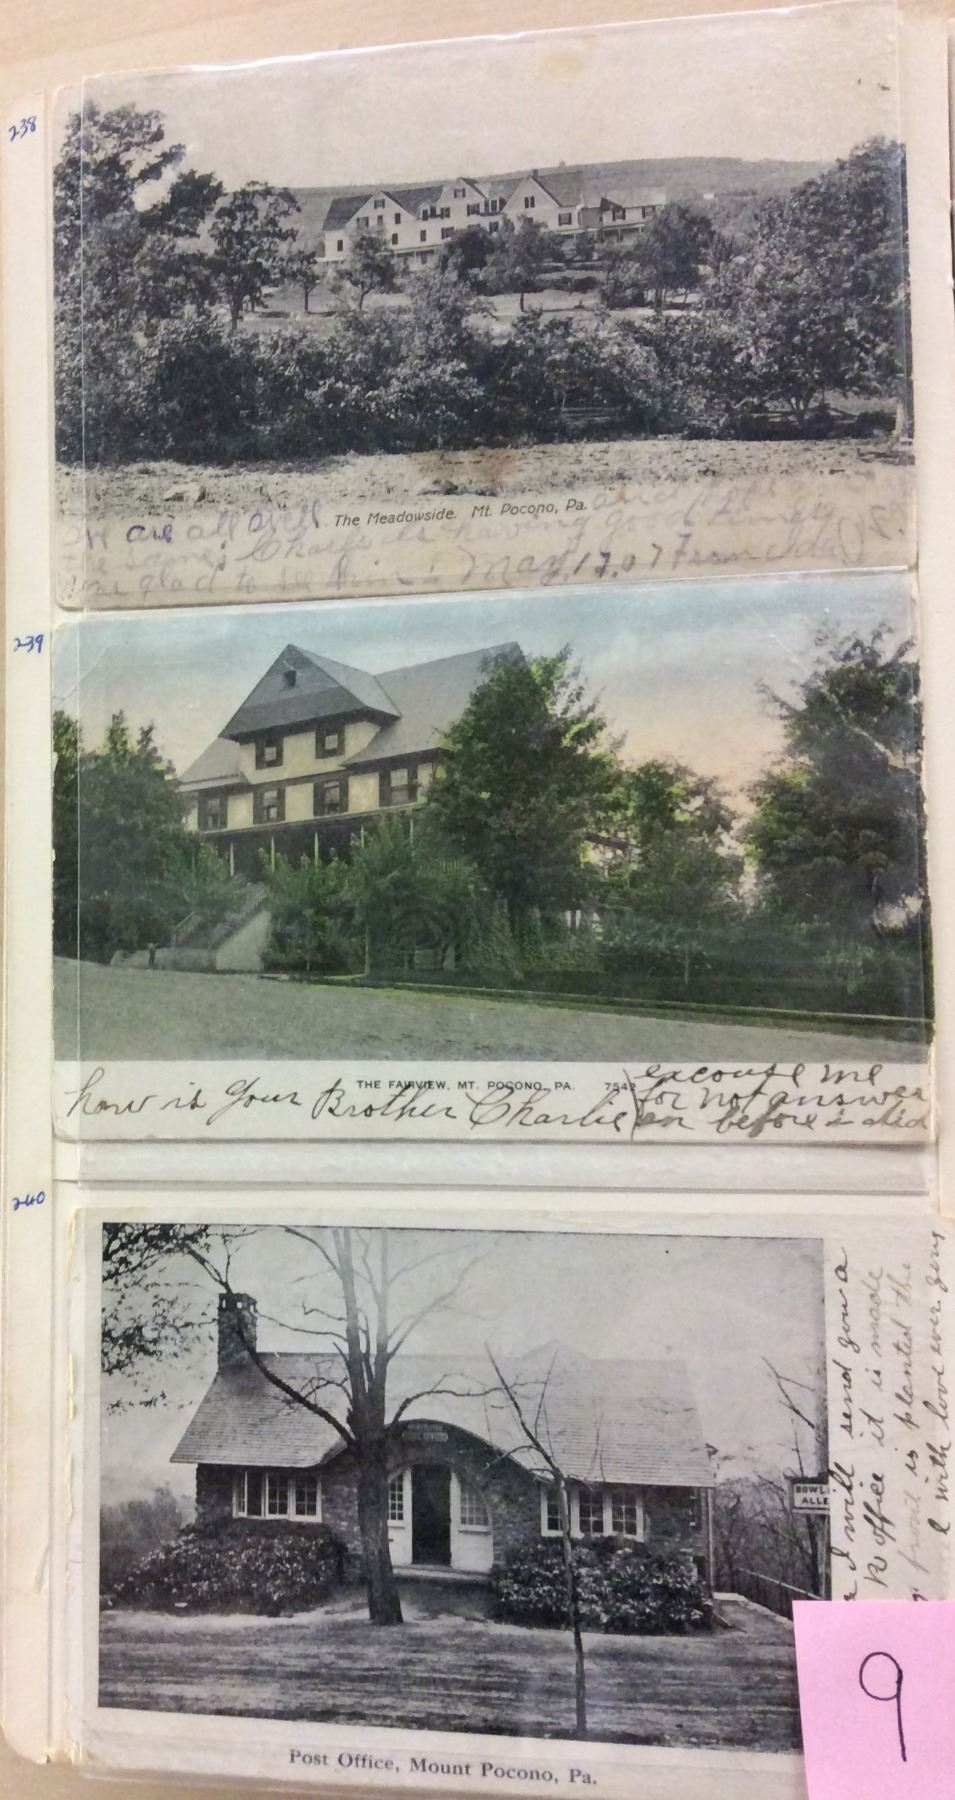 238
The Meadowside. Mt. Pocono, Pa.
We are all well and
the same. Charlie is having good times
glad to see him. May, 17, 07 From Ida
239
THE FAIRVIEW, MT. POCONO, PA. 7542
how is your Brother Charlie
excouse me
for not answer
en before i did
240
POST OFFICE
BOWLI
ALLE
I will send you a
office it is made
front is planted the
with love ever
Post Office, Mount Pocono, Pa.
9